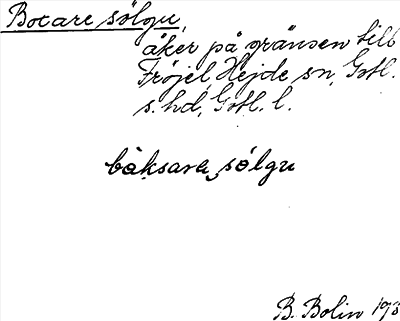 Bocare sölgu,
åker på gränsen till
Fröjel, Hejde sn, Gotl.
s. hd, Gotl. l.
båksara sólgu
B. Bolin